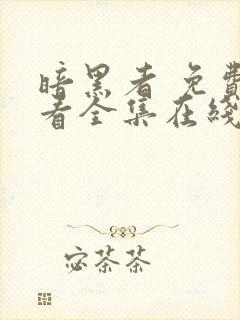 暗黑者 免费
看全集在线
宓茶茶